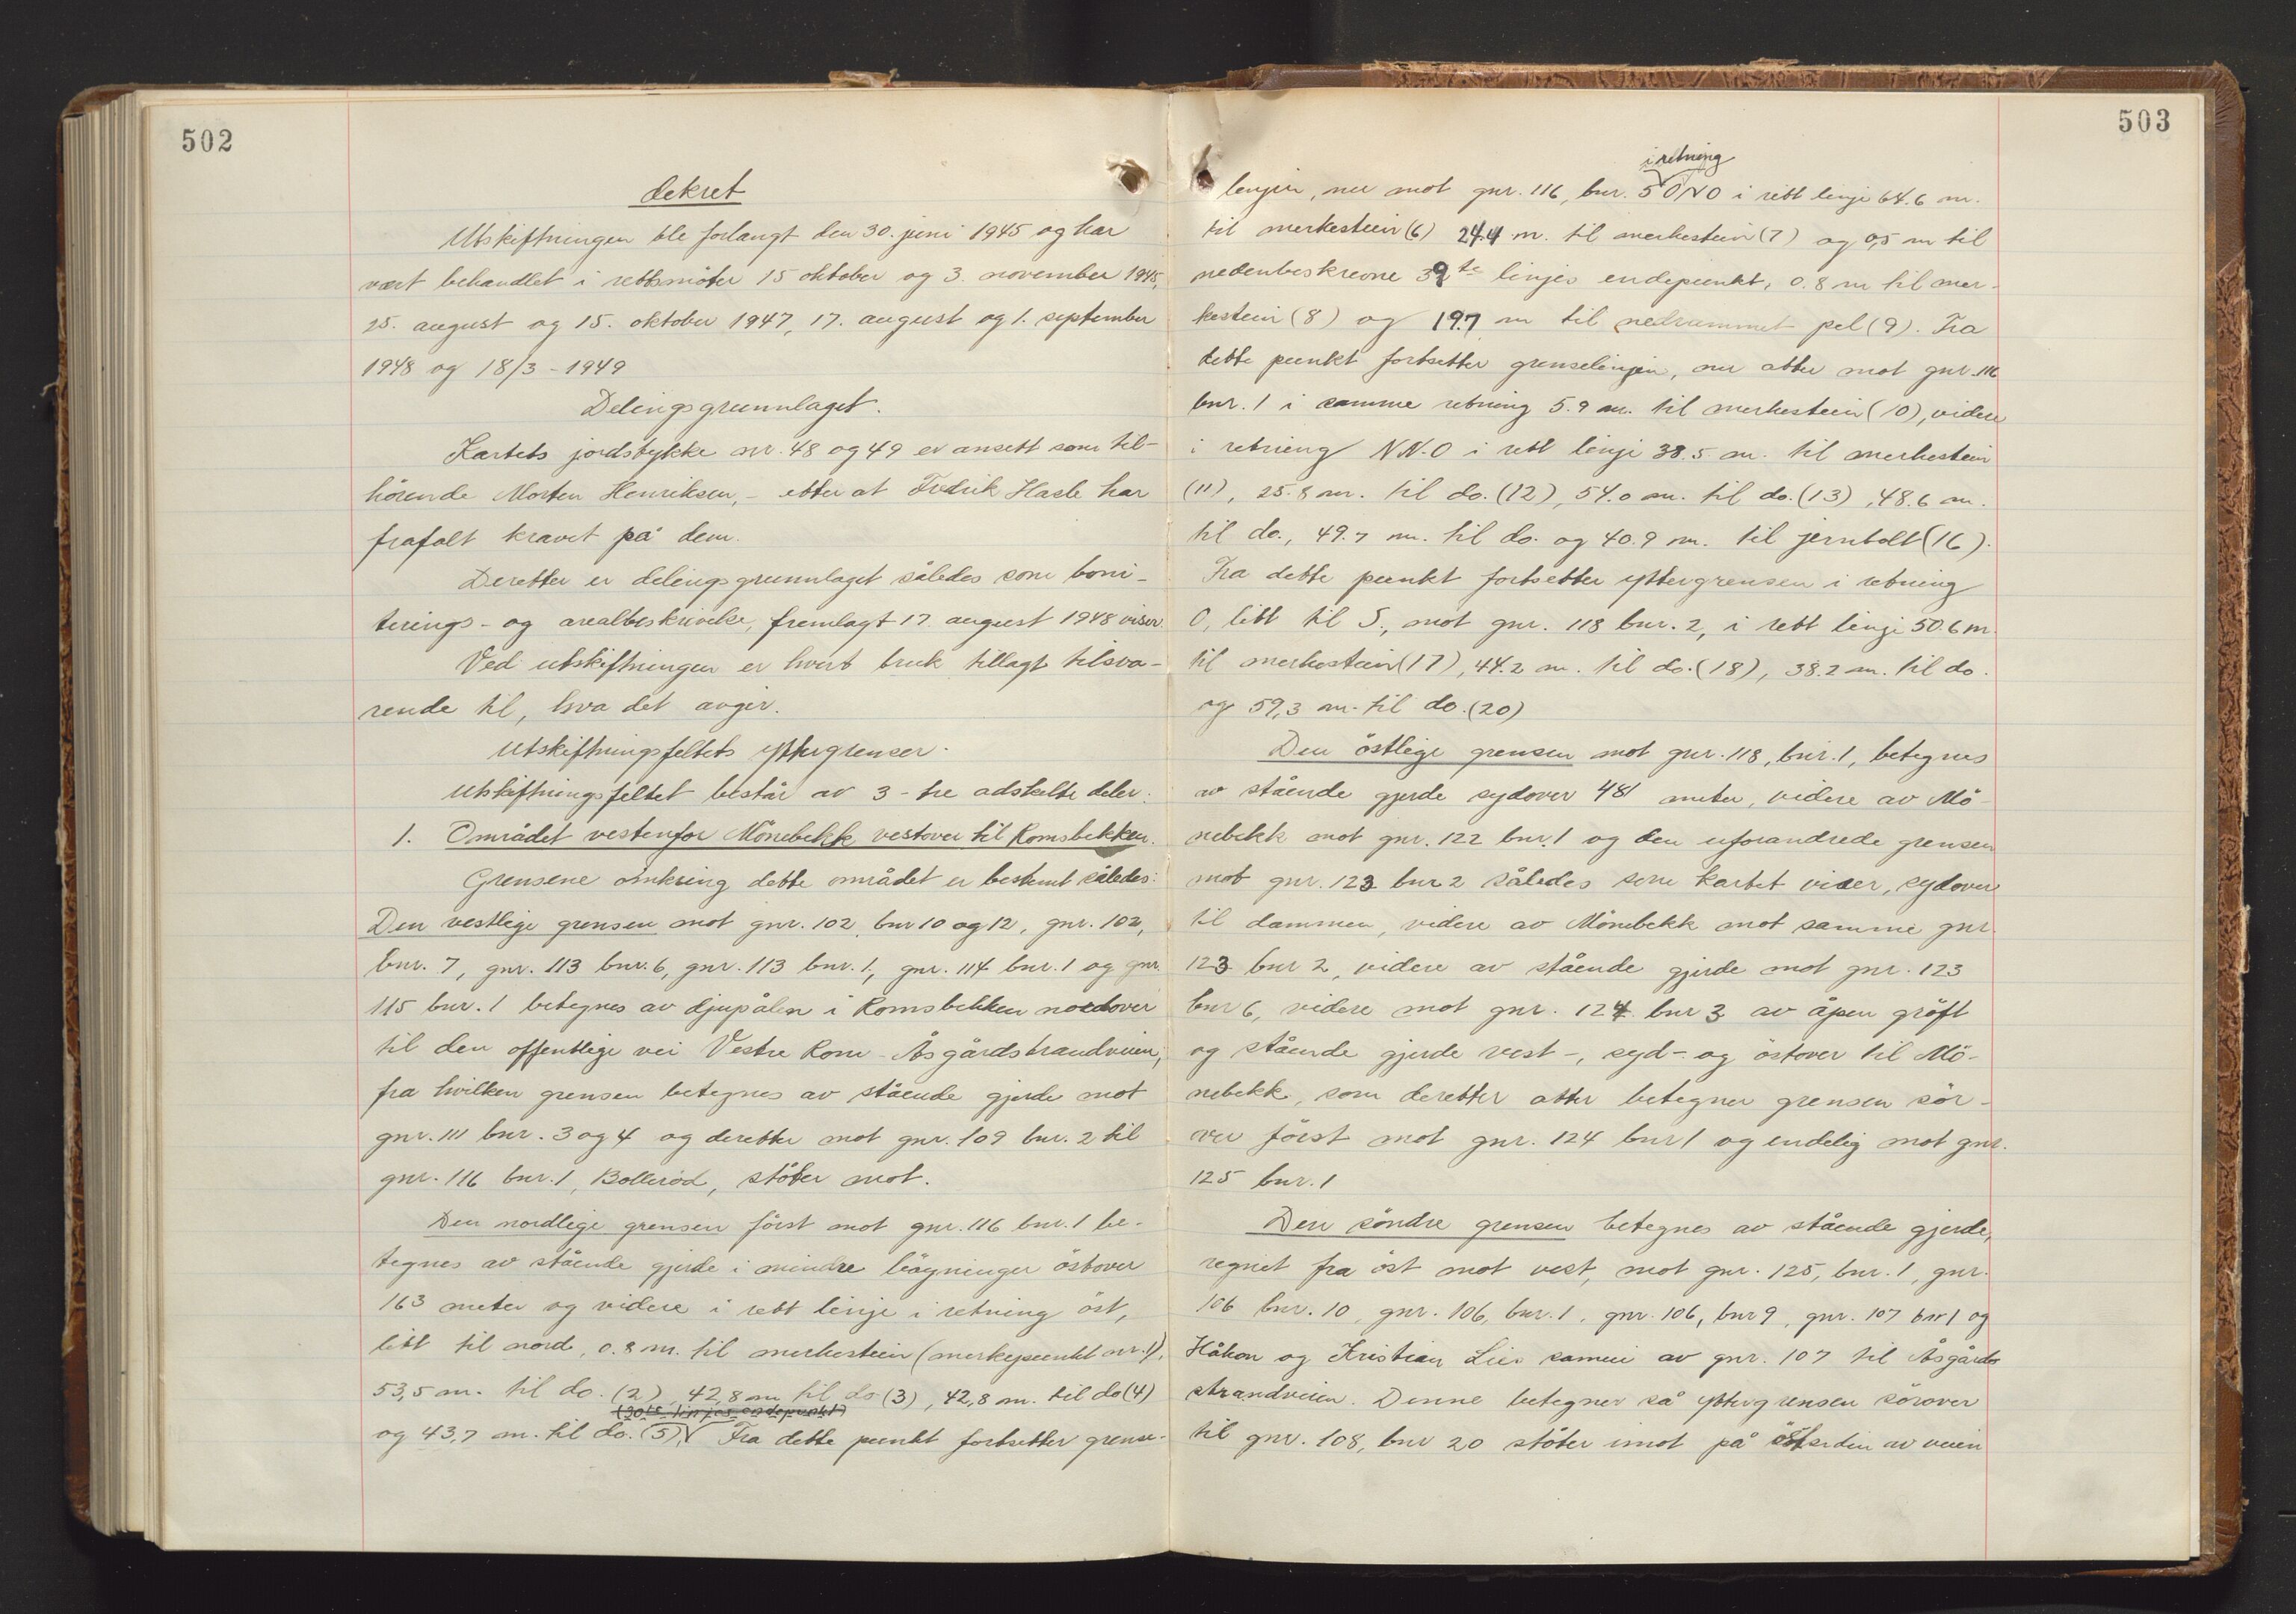 502
dekret
Utskiftningen ble forlangt den 30. juni 1945 og har
vært behandlet i rettsmöter 15 oktober og 3. november 1945,
25. august og 15. oktober 1947, 17. august og 1. september
1948 og 18/3 - 1949
Delingsgrunnlaget.
Kartets jordstykke nr. 48 og 49 er ansett som til-
hörende Morten Henriksen, - etter at Fredrik Hasle har
frafalt kravet på dem.
Deretter er delingsgrunnlaget således som boni-
terings- og arealbeskrivelse, fremlagt 17. august 1948 viser
Ved utskiftningen er hvert bruk tillagt tilsva-
rende til, hva det avgir.
Utskiftningsfeltets yttergrenser.
Utskiftningsfeltet består av 3 - tre adskilte deler:
1. Området vestenfor Mönebekk vestover til Romsbekken.
Grensene omkring dette området er bestemt således:
Den vestlige grensen mot gnr. 102, bnr 10 og 12, gnr. 102,
bnr. 7, gnr. 113 bnr. 6, gnr. 113 bnr. 1, gnr. 114 bnr. 1 og gnr.
115 bnr. 1 betegnes av djupålen i Romsbekken nordover
til den offentlige vei Vestre Rom - Åsgårdstrandveien,
fra hvilken grensen betegnes av stående gjerde mot
gnr. 111 bnr. 3 og 4 og deretter mot gnr. 109 bnr. 2 til
gnr. 116 bnr. 1, Bolleröd, stöter mot.
Den nordlige grensen först mot gnr. 116 bnr. 1 be-
tegnes av stående gjerde i mindre böyninger östover
163 meter og videre i rett linje i retning öst,
litt til nord, 0.8 m. til merkestein (merkepunkt nr. 1),
53,5 m. til do. (2), 42,8 m til do (3), 42,8 m. til do (4)
(20te linjes endepunkt)
og 43,7 m. til do. (5). Fra dette punkt fortsetter grense-
503
i retning
linjen, nu mot gnr. 116, bnr. 5 ONO i rett linje 64.6 m.
til merkestein (6) 24.4 m. til merkestein (7) og 0,5 m til
nedenbeskrevne 39te linjes endepunkt, 0.8 m til mer-
kestein (8) og 19.7 m til nedrammet pel (9). Fra
dette punkt fortsetter grenselinjen, nu atter mot gnr. 116
bnr. 1 i samme retning 5.9 m. til merkestein (10), videre
i retning NN.O i rett linje 38.5 m. til merkestein
(11), 25.8 m. til do. (12), 54.0 m. til do. (13), 48.6 m.
til do., 49.7 m. til do. og 40.9 m. til jernbolt (16).
Fra dette punkt fortsetter yttergrensen i retning
O, litt til S., mot gnr. 118 bnr. 2, i rett linje 50.6 m.
til merkestein (17), 44.2 m. til do. (18), 38.2 m. til do.
og 59,3 m. til do. (20)
Den östlige grensen mot gnr. 118, bnr. 1, betegnes
av stående gjerde sydover 481 meter, videre av Mö-
nebekk mot gnr. 122 bnr. 1 og den uforandrede grensen
mot gnr. 123 bnr 2 således som kartet viser, sydover
til dammen, videre av Mönebekk mot samme gnr.
123 bnr 2, videre av stående gjerde mot gnr. 123
bnr 6, videre mot gnr. 124 bnr 3 av åpen gröft
og stående gjerde vest-, syd- og östover til Mö-
nebekk, som deretter atter betegner grensen sör-
ver först mot gnr. 124 bnr 1 og endelig mot gnr.
125 bnr. 1
Den söndre grensen betegnes av stående gjerde,
regnet fra öst mot vest, mot gnr. 125, bnr. 1, gnr.
106 bnr. 10, gnr. 106, bnr. 1, gnr. 106, bnr 9, gnr. 107 bnr 1 og
Håkon og Kristian Lies sameie av gnr. 107 til Åsgårds
strandveien. Denne betegner så yttergrensen sörover
til gnr. 108, bnr 20 stöter imot på östsiden av veien